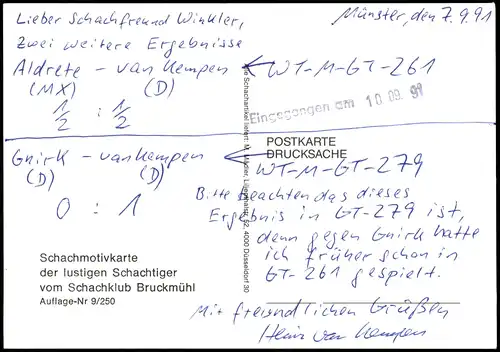 Lieber Schachfreund Winkler,
Münster, den 7.9.91
zwei weitere Ergebnisse
Aldrete – van Kempen ← WT-M-GT-261
(MX) (D)
1/2 : 1/2
Eingegangen am 10. 09. 91
Gnirk – van Kempen ← WT-M-GT-279
(D) (D)
0 : 1
POSTKARTE
DRUCKSACHE
Bitte beachten das dieses
Ergebnis in GT-279 ist,
denn gegen Gnirk hatte
ich früher schon in
GT-261 gespielt.
Mit freundlichen Grüßen
Hein van Kempen
Schachmotivkarte
der lustigen Schachtiger
vom Schachklub Bruckmühl
Auflage-Nr 9/250
Schachartikel liefert: M. Mädler, Lilienthalstr. 52, 4000 Düsseldorf 30